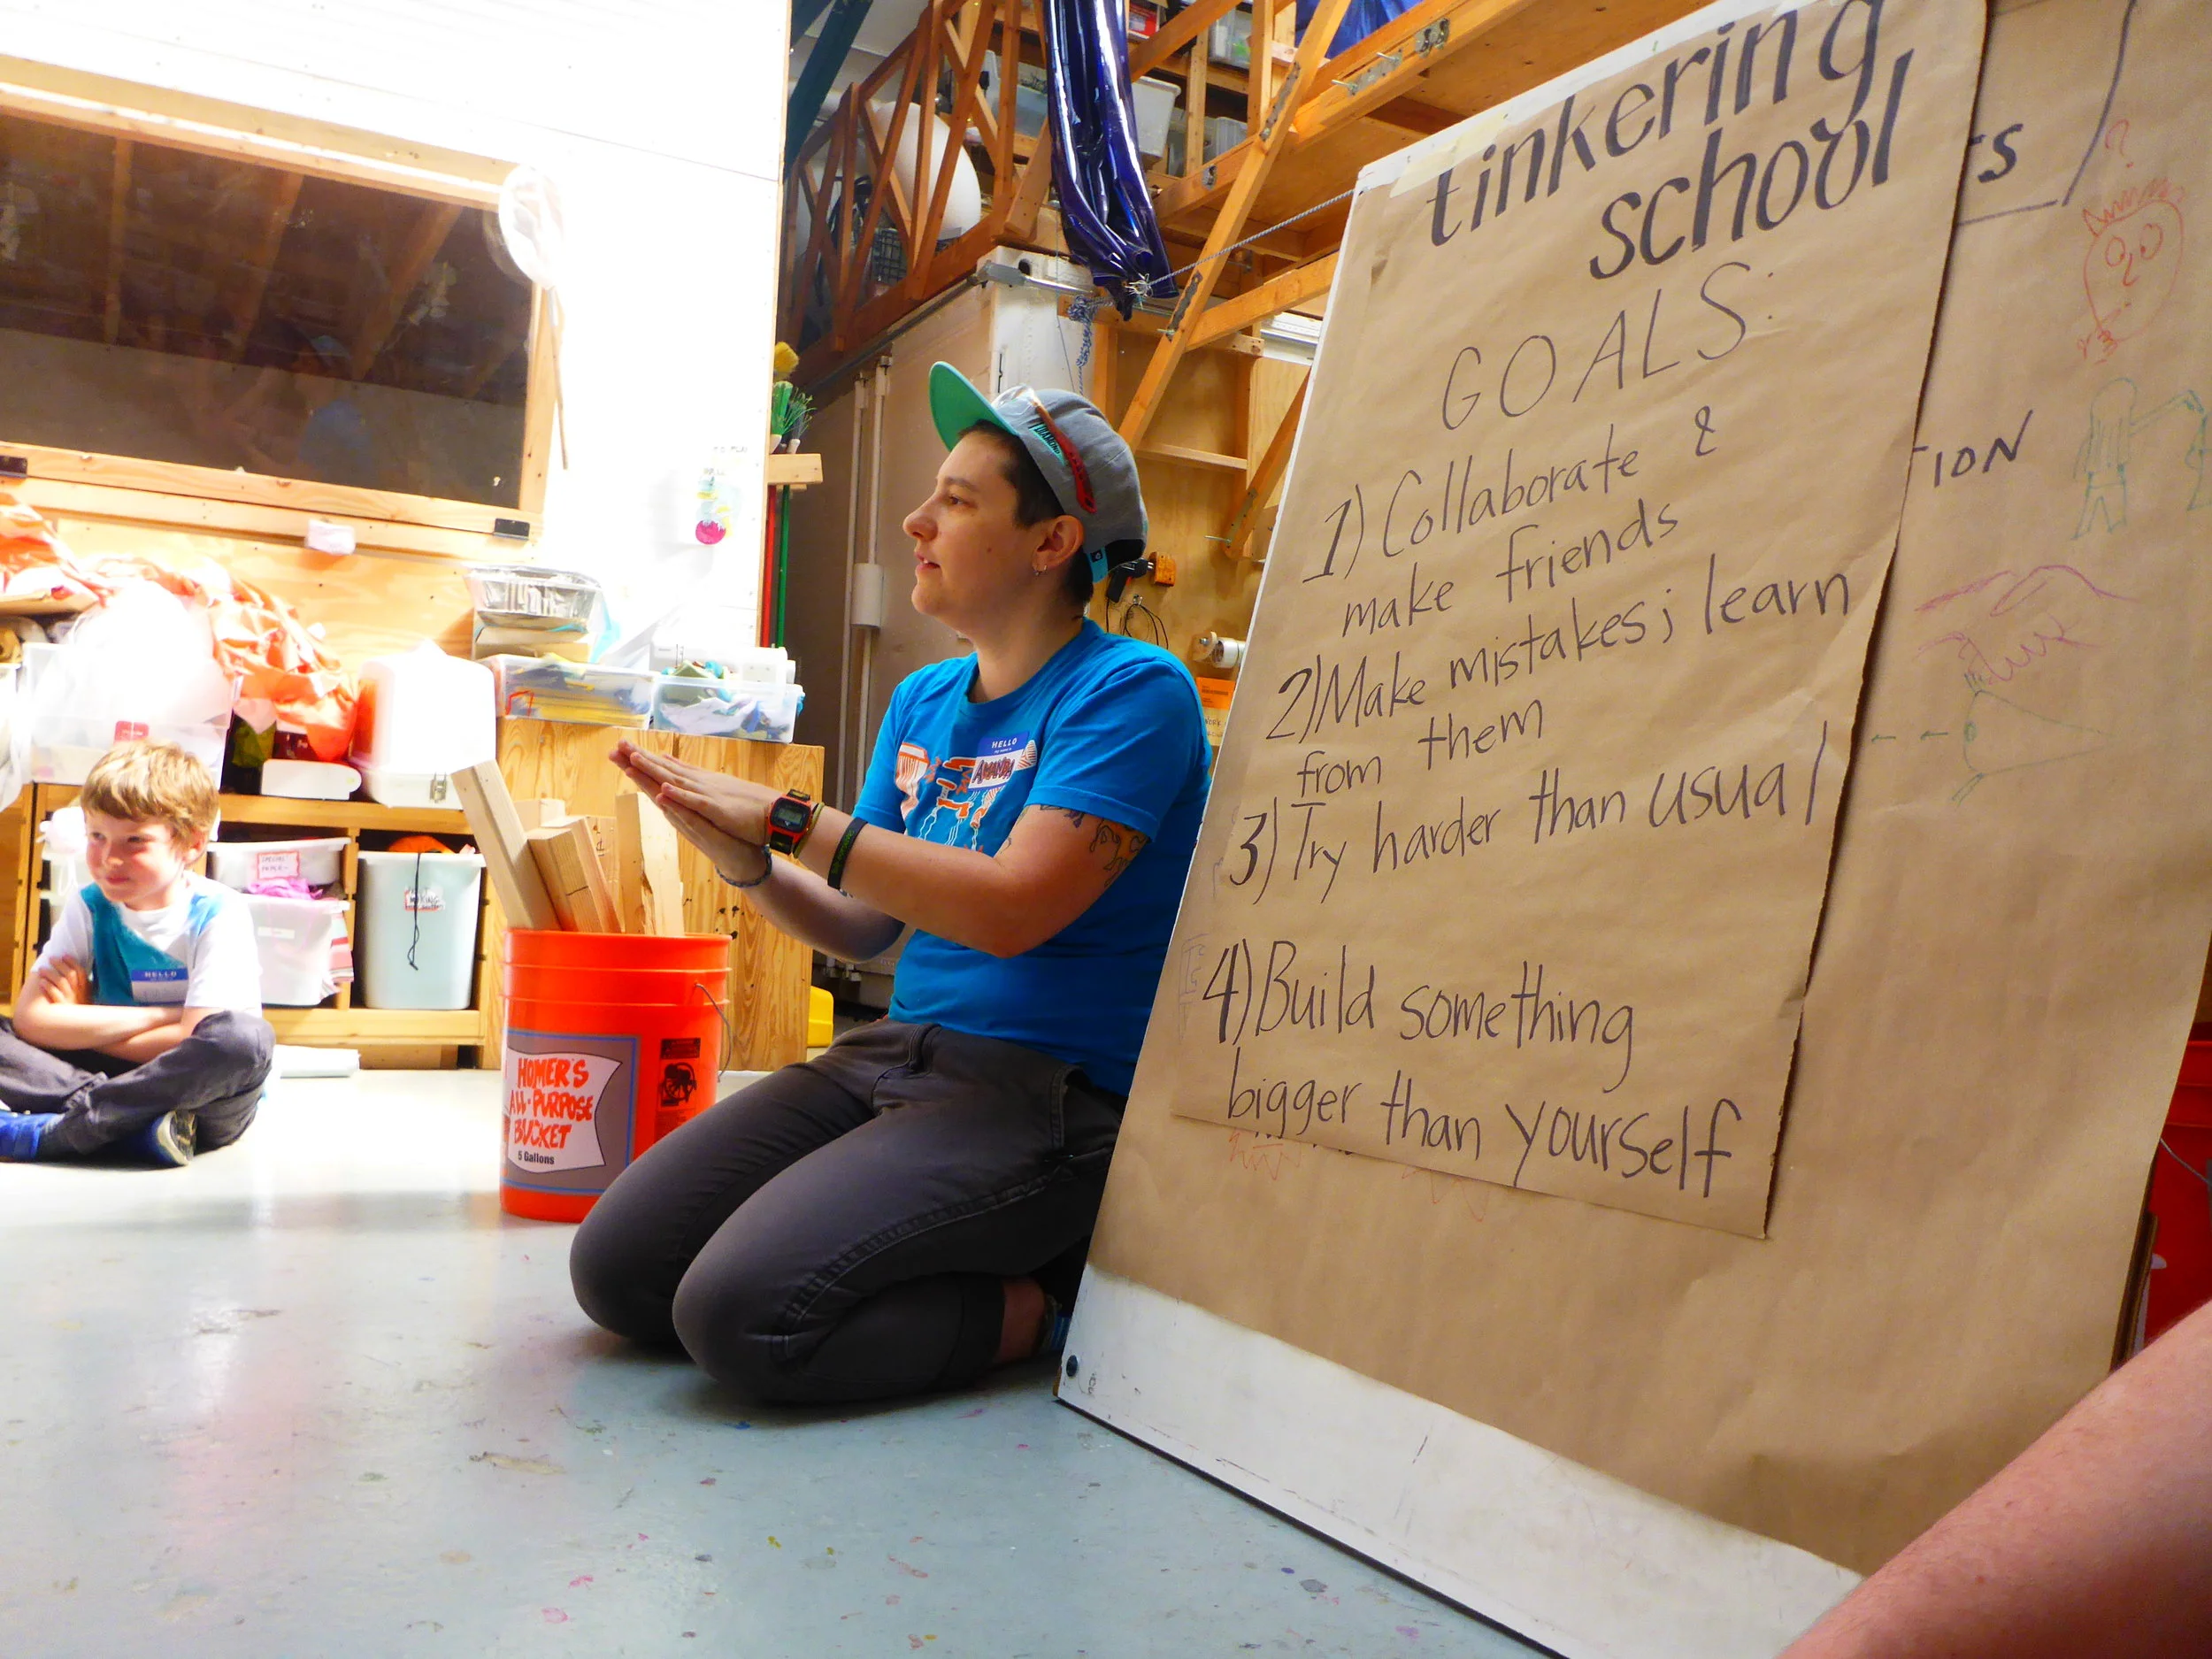 tinkering
school
GOALS:
1) Collaborate &
make friends
2) Make mistakes; learn
from them
3) Try harder than usual
4) Build something
bigger than yourself
TION
HELLO
AMANDA
HELLO
HOMER'S
ALL-PURPOSE
BUCKET
5 Gallons